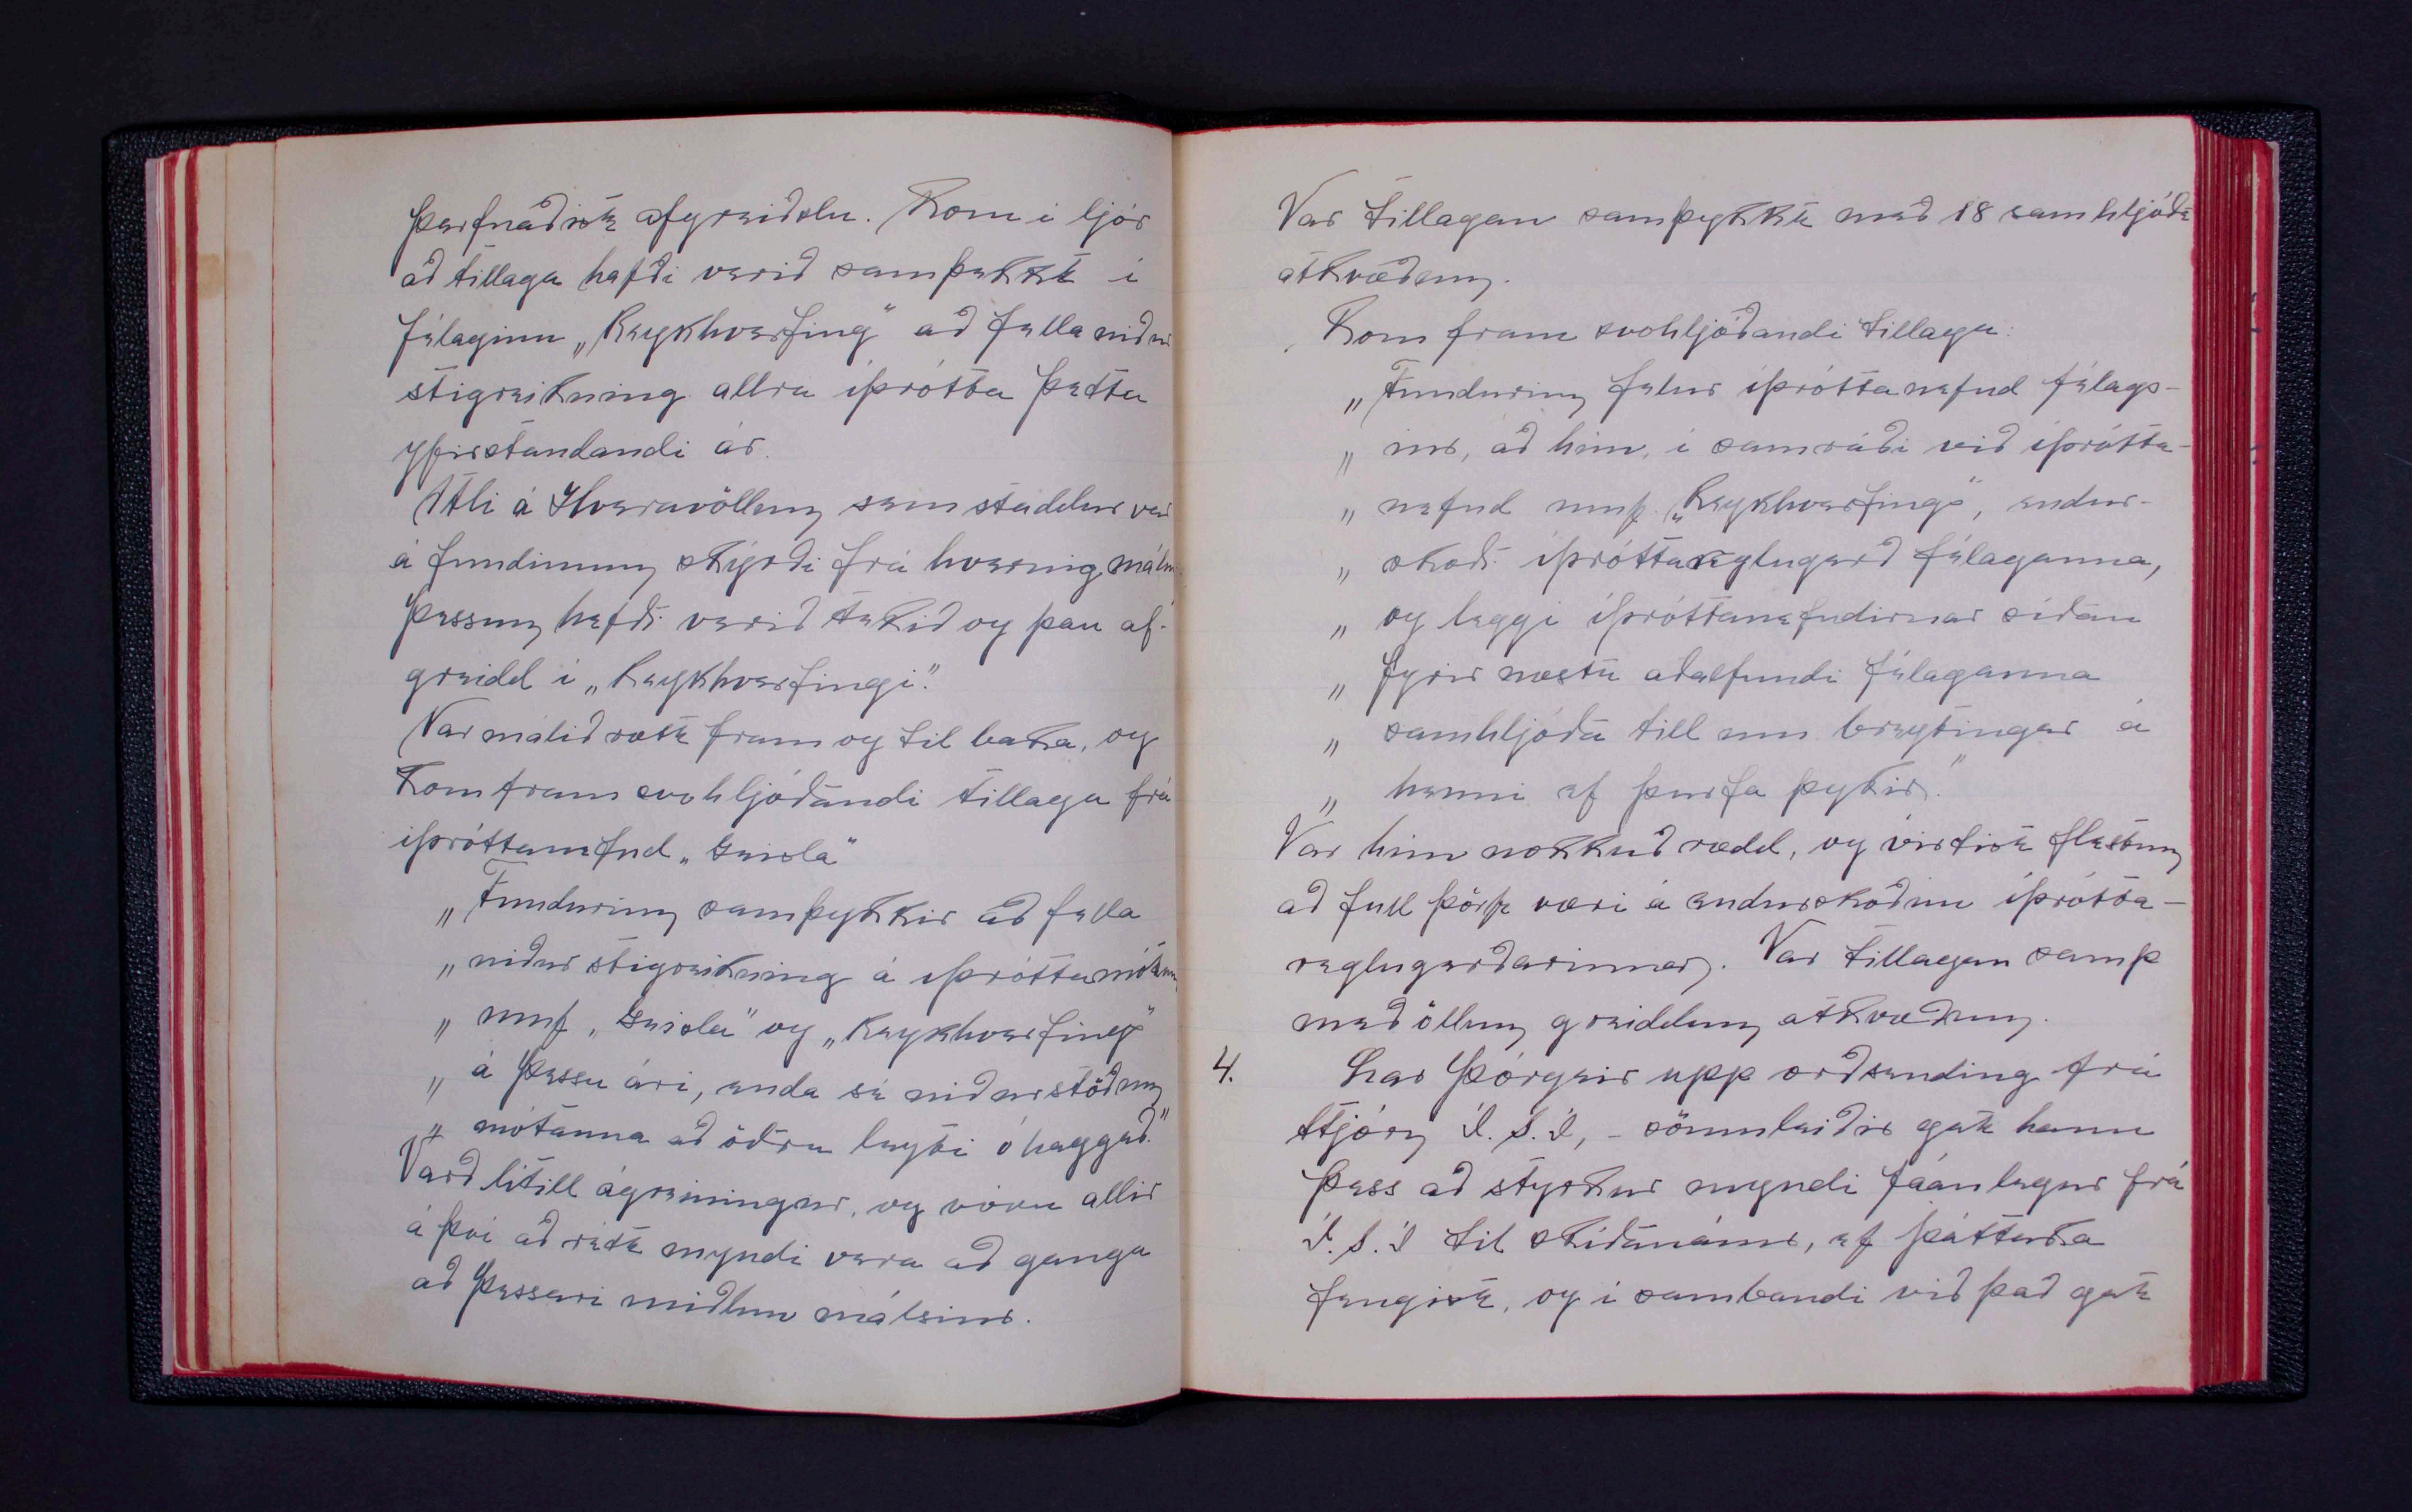 þarfnaðist afgreiðslu. Kom í ljós
að tillaga hafði verið samþykkt í
félaginu „Reykhverfing" að fella niður
stigreikning allra íþrótta þetta
yfirstandandi ár.
Atli á Hveravöllum sem staddur var
á fundinum skýrði frá hvernig málum
þessum hefði verið tekið og þau af-
greidd í „Reykhverfingi".
Var málið rætt fram og til baka, og
kom fram svohljóðandi tillaga frá
íþróttanefnd „Geisla"
„Fundurinn samþykkir að fella
„niður stigreikning á íþróttamótum
„ umf „Geisla" og „Reykhverfing"
„ á þessu ári, enda sé niðurstöðum
„ mótanna að öðru leyti óhaggað."
Varð lítill ágreiningur, og vóru allir
á því að rétt myndi vera að ganga
að þessari miðlun málsins.
Var tillagan samþykkt með 18 samhljóða
atkvæðum.
Kom fram svohljóðandi tillaga:
„Fundurinn felur íþróttanefnd félags-
„ ins, að hún, í samráði við íþrótta-
„ nefnd umf. „Reykhverfings", endur-
„ skoði íþróttareglugerð félaganna,
„ og leggi íþróttanefndirnar síðan
„ fyrir næstu aðalfundi félaganna
„ samhljóða till um breytingar á
„ henni ef þurfa þykir."
Var hún nokkuð rædd, og virtist flestum
að full þörf væri á endurskoðun íþrótta-
reglugerðarinnar. Var tillagan samþ
með öllum greiddum atkvæðum.
4. Las Þórgeir upp orðsending frá
stjórn Í.S.Í, - sömuleiðis gat hann
þess að styrkur myndi fáanlegur frá
Í.S.Í til skíðanáms, ef þátttaka
fengist, og í sambandi við það gat